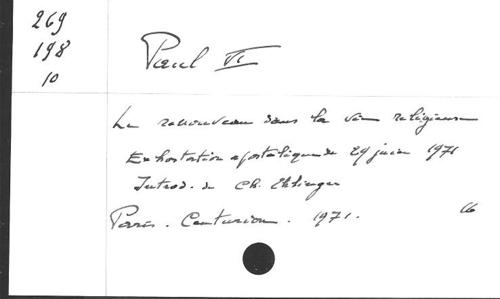 269
198
10
Paul VI
Le renouveau dans la vie religieuse
Exhortation apostolique du 29 juin 1971
Introd. de Ch. Ehlinger
Paris. Centurion. 1971.